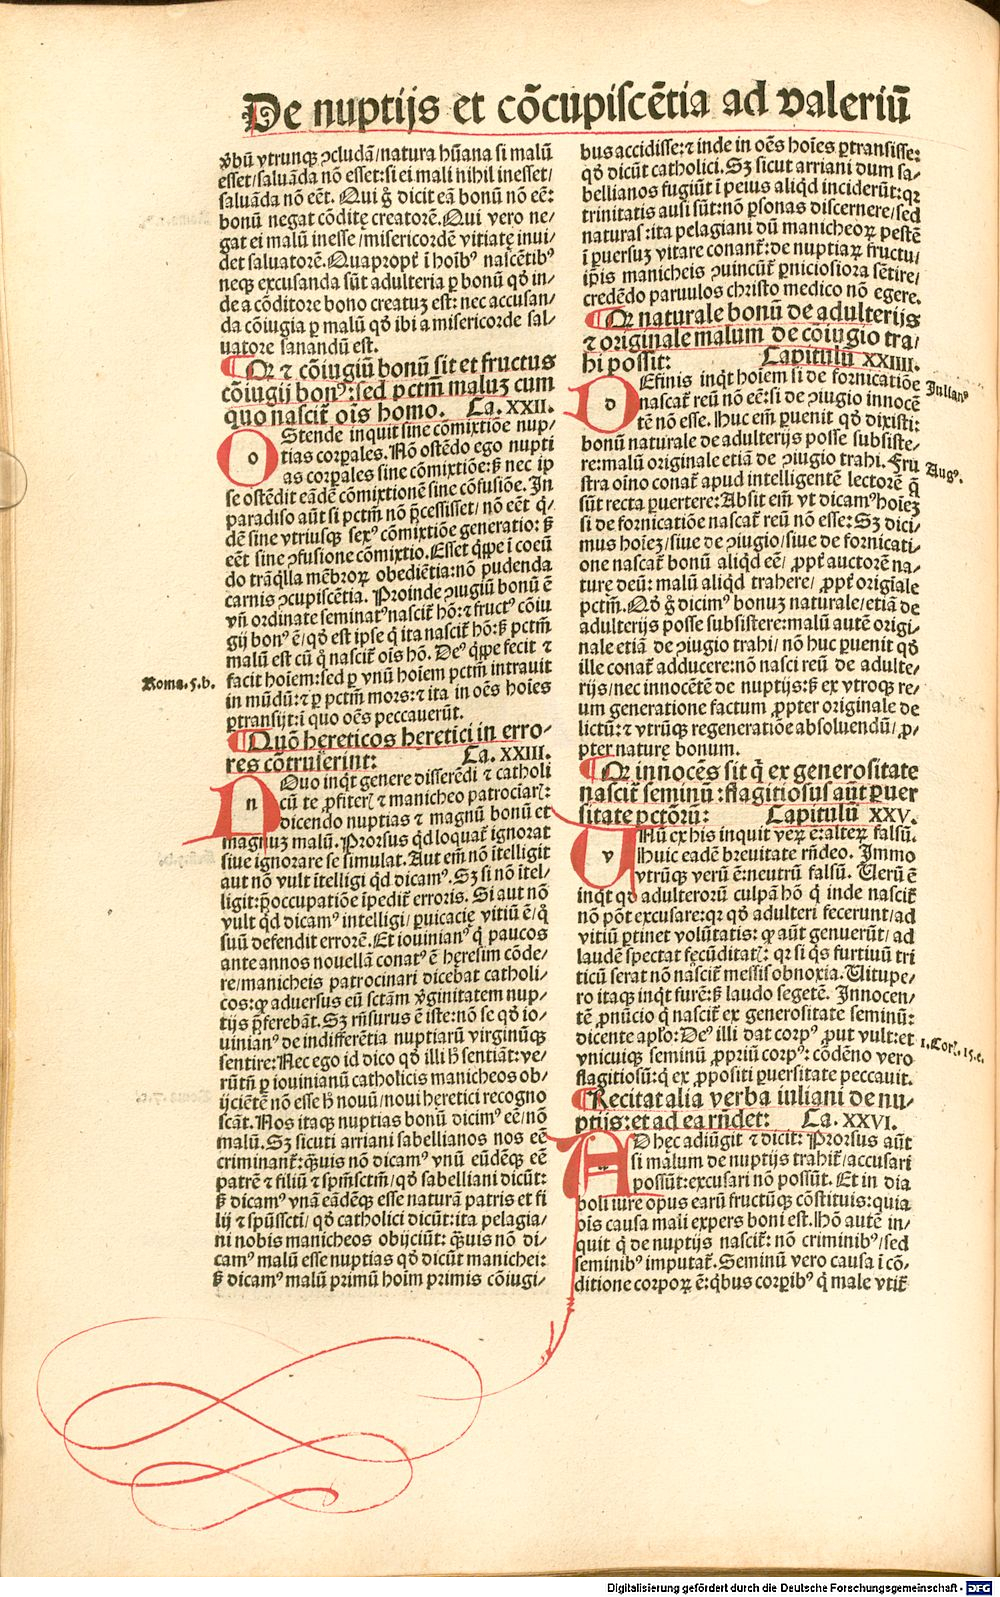 De nuptijs et cõcupiscẽtia ad valeriũ
v̓bũ vtrunqꝫ ↄcludã/natura hũana si malũ
esset/saluãda nõ esset:si ei mali nihil inesset/
saluãda nõ eẽt. Qui g̊ dicit eã bonũ nõ eẽ:
bonũ negat cõditę creatorẽ. Qui vero ne/
gat ei malũ inesse/misericordẽ vitiatę inui/
det saluatorẽ. Quapropt̓ ĩ hoĩbꝰ nascẽtibꝰ
neqꝫ excusanda sũt adulteria ꝑ bonũ qd̓ in/
de a cõditore bono creatuꝫ est: nec accusan/
da cõiugia ꝑ malũ qd̓ ibi a misericorde sal/
uatore sanandũ est.
¶ Qꝛ ⁊ cõiugiũ bonũ sit et fructus
cõiugij bonꝰ:sed pctm̃ maluꝫ cum
quo nascit̃ oĩs homo. Ca. XXII.
OStende inquit sine cõmixtiõe nup/
tias corꝑales. Nõ ostẽdo ego nupti
as corꝑales sine cõmixtiõe:ꝫ nec ip
se ostẽdit eãdẽ cõmixtionẽ sine cõfusiõe. In
paradiso aũt si pctm̃ nõ p̃cessisset/nõ eẽt q̇/
dẽ sine vtriusqꝫ sexꝰ cõmixtiõe generatio: ꝫ
eẽt sine ↄfusione cõmixtio. Esset q̇ꝑe ĩ coeũ
do trãq̇lla mẽbroꝝ obediẽtia:nõ pudenda
carnis ↄcupiscẽtia. Proinde ↄiugiũ bonũ ẽ
vñ ordinate seminatꝰ nascit̃ hõ: ⁊ fructꝰ cõiu
gij bonꝰ ẽ/qd̓ est ipse q̇ ita nascit̃ hõ:ꝫ pctm̃
malũ est cũ q̊ nascit̃ oĩs hõ. Deꝰ q̇ꝑe fecit ⁊
facit hoĩem:sed ꝑ vnũ hoĩem pctm̃ intrauit
in mũdũ:⁊ ꝑ pctm̃ mors:⁊ ita in oẽs hoĩes
ꝑtransijt:ĩ quo oẽs peccauerũt.
Roma. 5. b.
¶ Quõ hereticos hęretici in erro-
res cõtruserint: Ca. XXIII.
NQuo inq̇t genere disserẽdi ⁊ catholi
cũ te ꝓfiteri ⁊ manicheo patrociaris:
dicendo nuptias ⁊ magnũ bonũ et
magnuꝫ malũ. Prorsus qd̓ loquat̃ ignorat
siue ignorare se simulat. Aut em̃ nõ ĩtelligit
aut nõ vult ĩtelligi qd̓ dicamꝰ. Sꝫ si nõ ĩtel/
ligit:p̃occupatiõe ĩpedit̃ erroris. Si aut nõ
vult qd̓ dicamꝰ intelligi/ꝑuicacię vitiũ ẽ/q̊
suũ defendit errorẽ. Et iouinianꝰ q̇ paucos
ante annos nouellã conatꝰ ẽ hęresim cõde/
re/manicheis patrocinari dicebat catholi/
cos:qꝛ aduersus eũ sctãm v̓ginitatem nup/
tijs p̃ferebãt. Sꝫ rñsurus ẽ iste:nõ se qd̓ io/
uinianꝰ de indifferẽtia nuptiarũ virginũqꝫ
sentire:Nec ego id dico qd̓ illi h̓ sentiãt:ve/
rũtñ ꝑ iouinianũ catholicis manicheos ob/
ijciẽtẽ nõ esse h̓ nouũ/noui heretici recogno
scãt. Nos itaqꝫ nuptias bonũ dicimꝰ eẽ/nõ
malũ. Sꝫ sicuti arriani sabellianos nos eẽ
criminant̃:q̃uis nõ dicamꝰ vnũ eũdẽqꝫ eẽ
patrẽ ⁊ filiũ ⁊ spm̃sctm̃/qd̓ sabelliani dicũt:
ꝫ dicamꝰ vnã eãdẽqꝫ esse naturã patris et fi
lij ⁊ spũsscti/qd̓ catholici dicũt:ita pelagia/
ni nobis manicheos obijciũt: q̃uis nõ di/
camꝰ malũ esse nuptias qd̓ dicũt manichei:
ꝫ dicamꝰ malũ primũ hoĩm primis cõiugi/
bus accidisse:⁊ inde in oẽs hoĩes ꝑtransisse:
qd̓ dicũt catholici. Sꝫ sicut arriani dum sa/
bellianos fugiũt ĩ peius aliqd̓ inciderũt:qꝛ
trinitatis ausi sũt:nõ ꝑsonas discernere/sed
naturas:ita pelagiani dũ manicheoꝝ pestẽ
ĩ ꝑuersuꝫ vitare conant̃:de nuptiaꝝ fructu/
ip̃is manicheis ↄuincũt̃ ꝑniciosiora sẽtire/
credẽdo paruulos christo medico nõ egere.
¶ Qꝛ naturale bonũ de adulterijs
⁊ originale malum de cõiugio tra/
hi possit: Capitulũ XXIIII.
DEfinis inq̇t hoĩem si de fornicatiõe
nascat̃ reũ nõ eẽ:si de ↄiugio innocẽ
tẽ nõ esse. Huc em̃ ꝑuenit qd̓ dixisti:
bonũ naturale de adulterijs posse subsiste/
re:malũ originale etiã de ↄiugio trahi. Fru
stra oĩno conat̃ apud intelligentẽ lectorẽ q̃
sũt recta ꝑuertere:Absit em̃ vt dicamꝰ hoĩeꝫ
si de fornicatiõe nascat̃ reũ nõ esse: Sꝫ dici/
mus hoĩeꝫ/siue de ↄiugio/siue de fornicati/
one nascat̃ bonũ aliqd̓ eẽ/ꝓpt̓ auctorẽ na/
turę deũ: malũ aliqd̓ trahere/ꝓpt̓ origiale
pctm̃. Qd̓ g̊ dicimꝰ bonuꝫ naturale/etiã de
adulterijs posse subsistere:malũ autẽ origi/
nale etiã de ↄiugio trahi/nõ huc ꝑuenit qd̓
ille conat̃ adducere:nõ nasci reũ de adulte/
rijs/nec innocẽtẽ de nuptijs:ꝫ ex vtroqꝫ re/
um generatione factum ꝓpter originale de
lictũ:⁊ vtrũqꝫ regeneratiõe absoluendũ/ꝓ/
pter naturę bonum.
Julianꝰ
Augꝰ.
¶ Qꝛ innocẽs sit q̇ ex generositate
nascit̃ seminũ:flagitiosus aũt ꝑuer
sitate pctõrũ: Capitulũ XXV.
VNũ ex his inquit veꝝ ẽ:alteꝝ falsũ.
Huic eadẽ breuitate rñdeo. Immo
vtrũqꝫ verũ ẽ:neutrũ falsũ. Verũ ẽ
inq̇t qꝛ adulterorũ culpã hõ q̇ inde nascit̃
nõ põt excusare:qꝛ qd̓ adulteri fecerunt/ad
vitiũ ꝑtinet volũtatis: qd̓ aũt genuerũt/ad
laudẽ spectat fecũditatis: qꝛ si q̇s furtiuũ tri
ticũ serat nõ nascit̃ messis obnoxia. Vitupe/
ro itaqꝫ inq̇t furẽ:ꝫ laudo segetẽ. Innocen/
tẽ ꝓnũcio q̇ nascit̃ ex generositate seminũ:
dicente apl̓o: Deꝰ illi dat corpꝰ ꝓut vult:et
vnicuiqꝫ seminũ ꝓpriũ corpꝰ: cõdẽno vero
flagitiosũ:q̇ ex ꝓpositi ꝑuersitate peccauit.
1. Cor. 15. e.
¶ Recitat alia verba iuliani de nu/
ptijs:et ad ea rñdet: Ca. XXVI.
ADhęc adiũgit ⁊ dicit: Prorsus aũt
si malum de nuptijs trahit̃/accusari
possũt:excusari nõ possũt. Et in dia
boli iure opus earũ fructũqꝫ cõstituis:quia
oĩs causa mali expers boni est. Hõ autẽ in/
quit q̇ de nuptijs nascit̃: nõ criminibꝰ/sed
seminibꝰ imputat̃. Seminũ vero causa ĩ cõ/
ditione corpoꝝ ẽ:q̇bus corꝑibꝰ q̇ male vtit̃
Digitalisierung gefördert durch die Deutsche Forschungsgemeinschaft - DFG